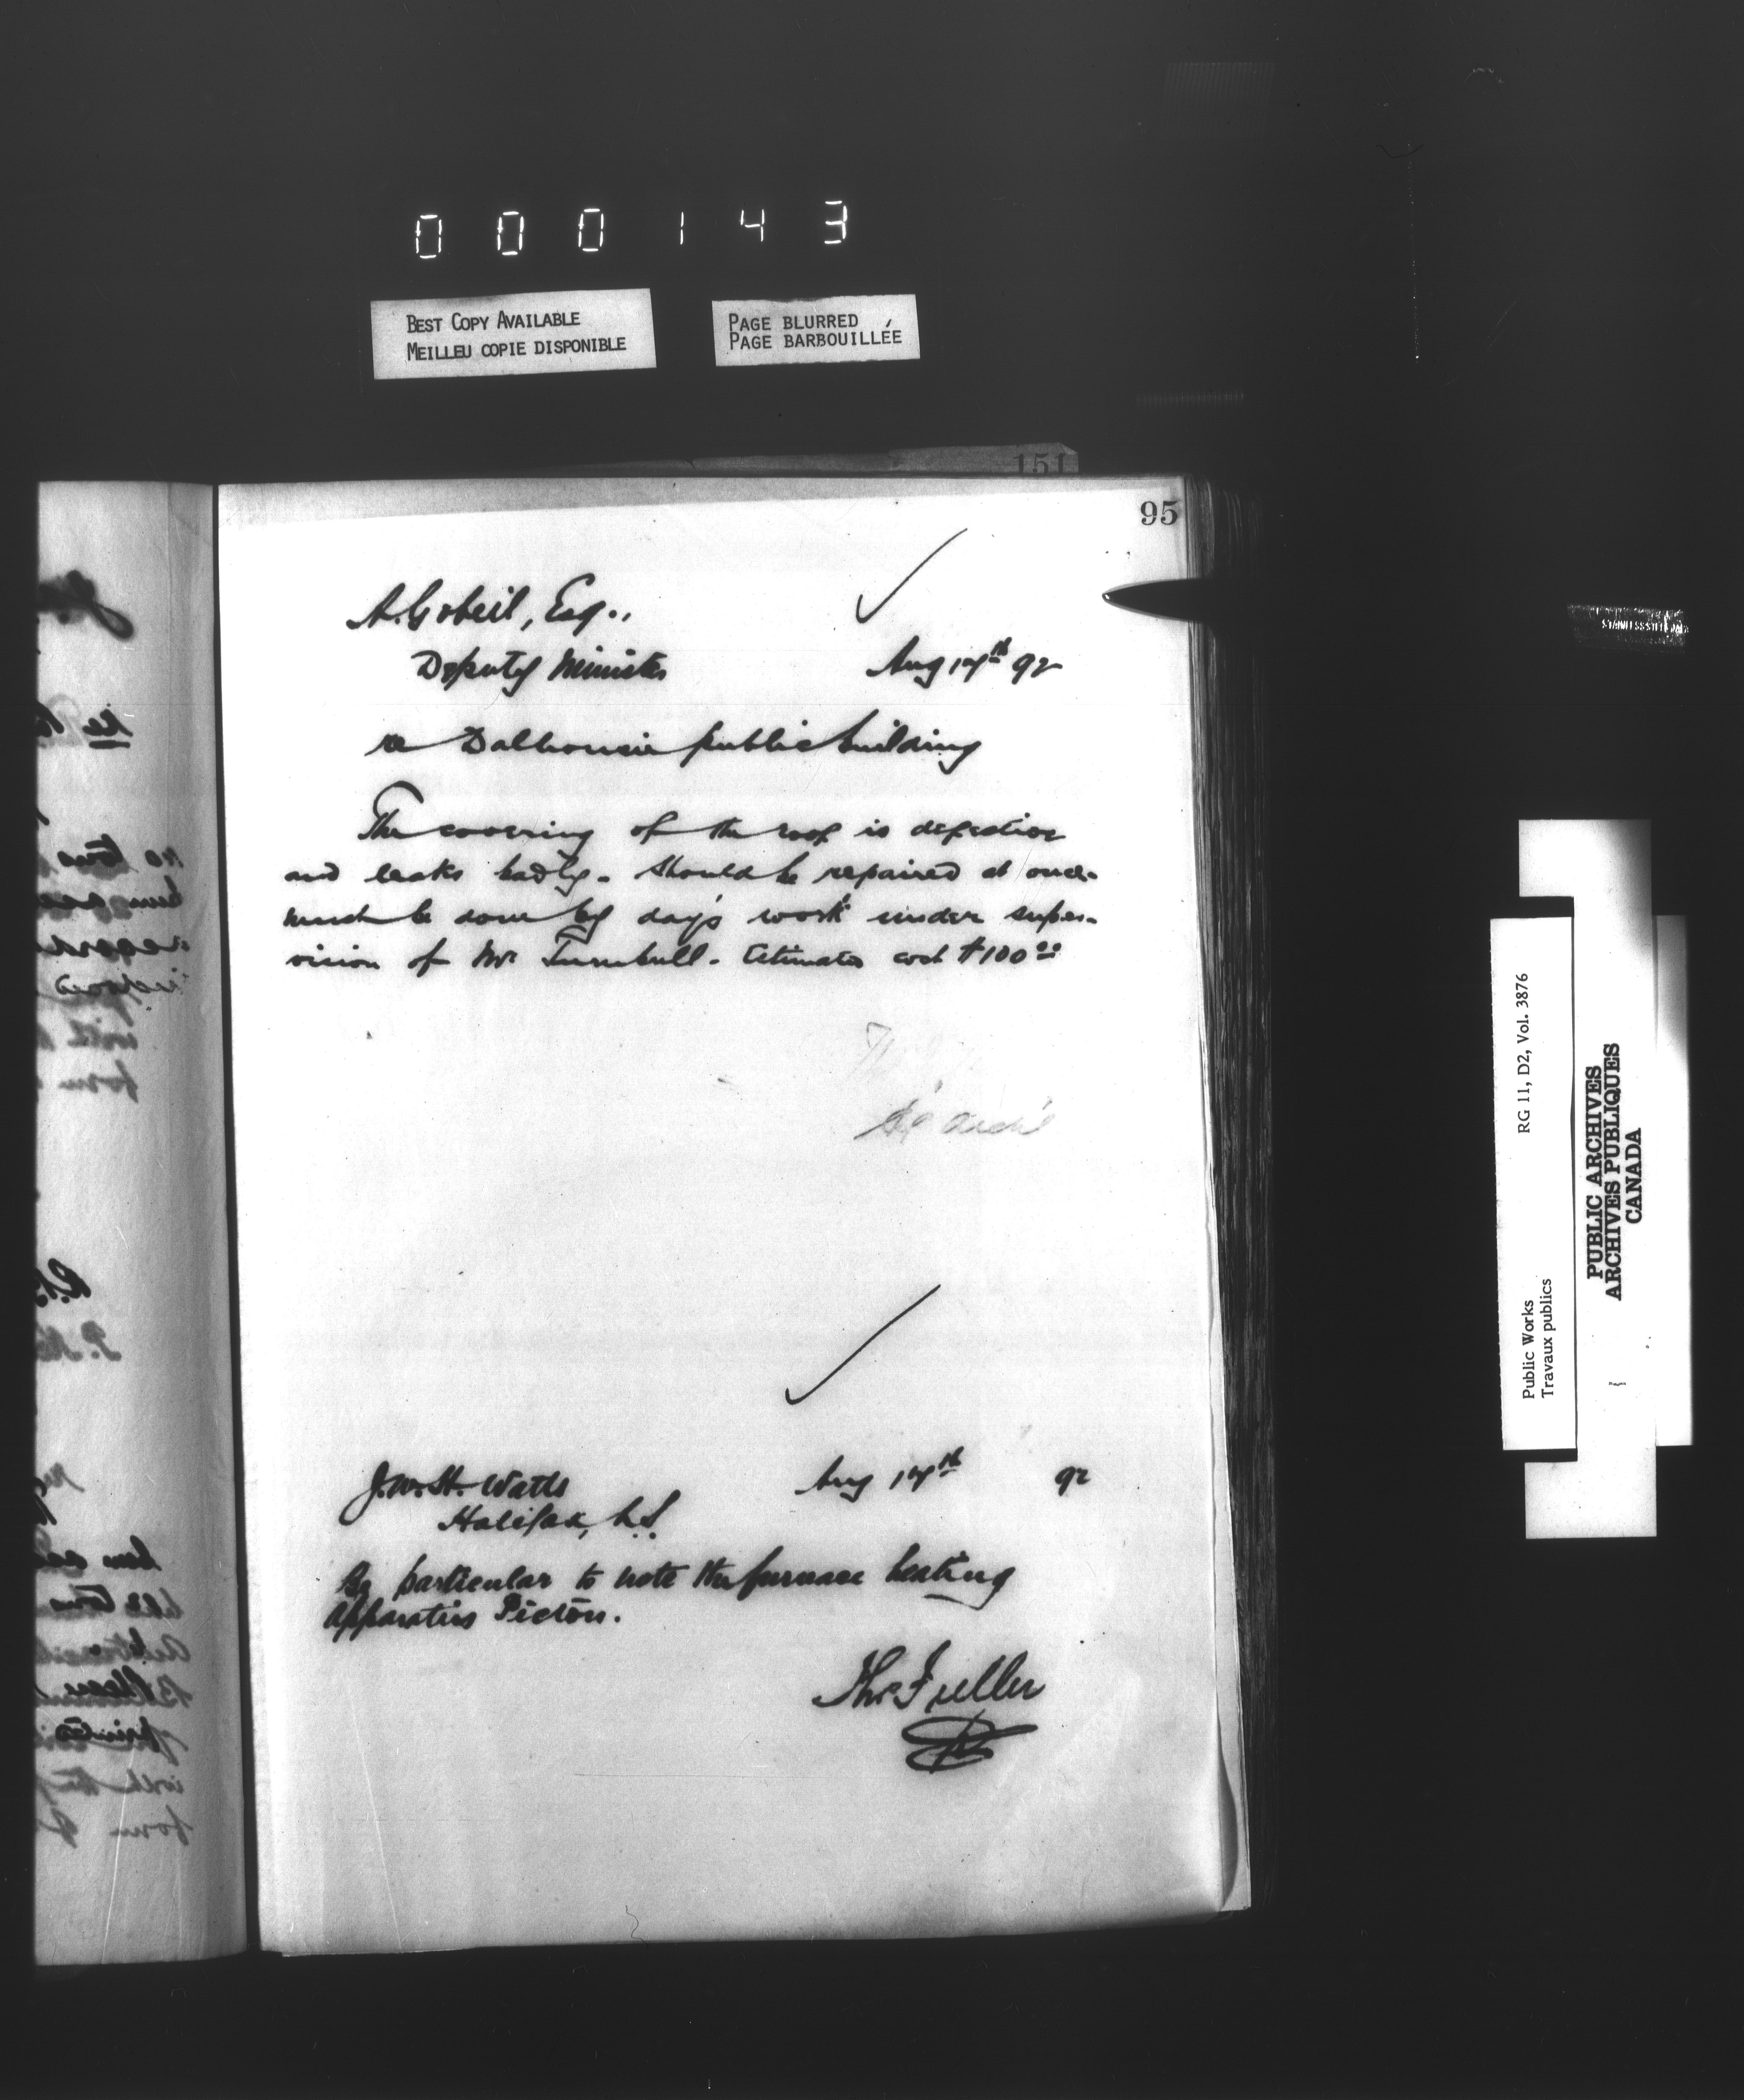 000143
BEST COPY AVAILABLE
MEILLEU COPIE DISPONIBLE
PAGE BLURRED
PAGE BARBOUILLÉE
151
95
A. Gobeil, Esq.,
Deputy Minister
Aug 17th 92
re Dalhousie public building
The covering of the roof is defective
and leaks badly. Should be repaired at once.
must be done by day's work under super-
vision of Mr Turnbull. Estimated cost $100 00
J.W.H. Watts
Aug 17th 92
Halifax, N.S.
Be particular to note the furnace heating
apparatus Pictou.
Thos Fuller
RG 11, D2, Vol. 3876
Public Works
Travaux publics
PUBLIC ARCHIVES
ARCHIVES PUBLIQUES
CANADA